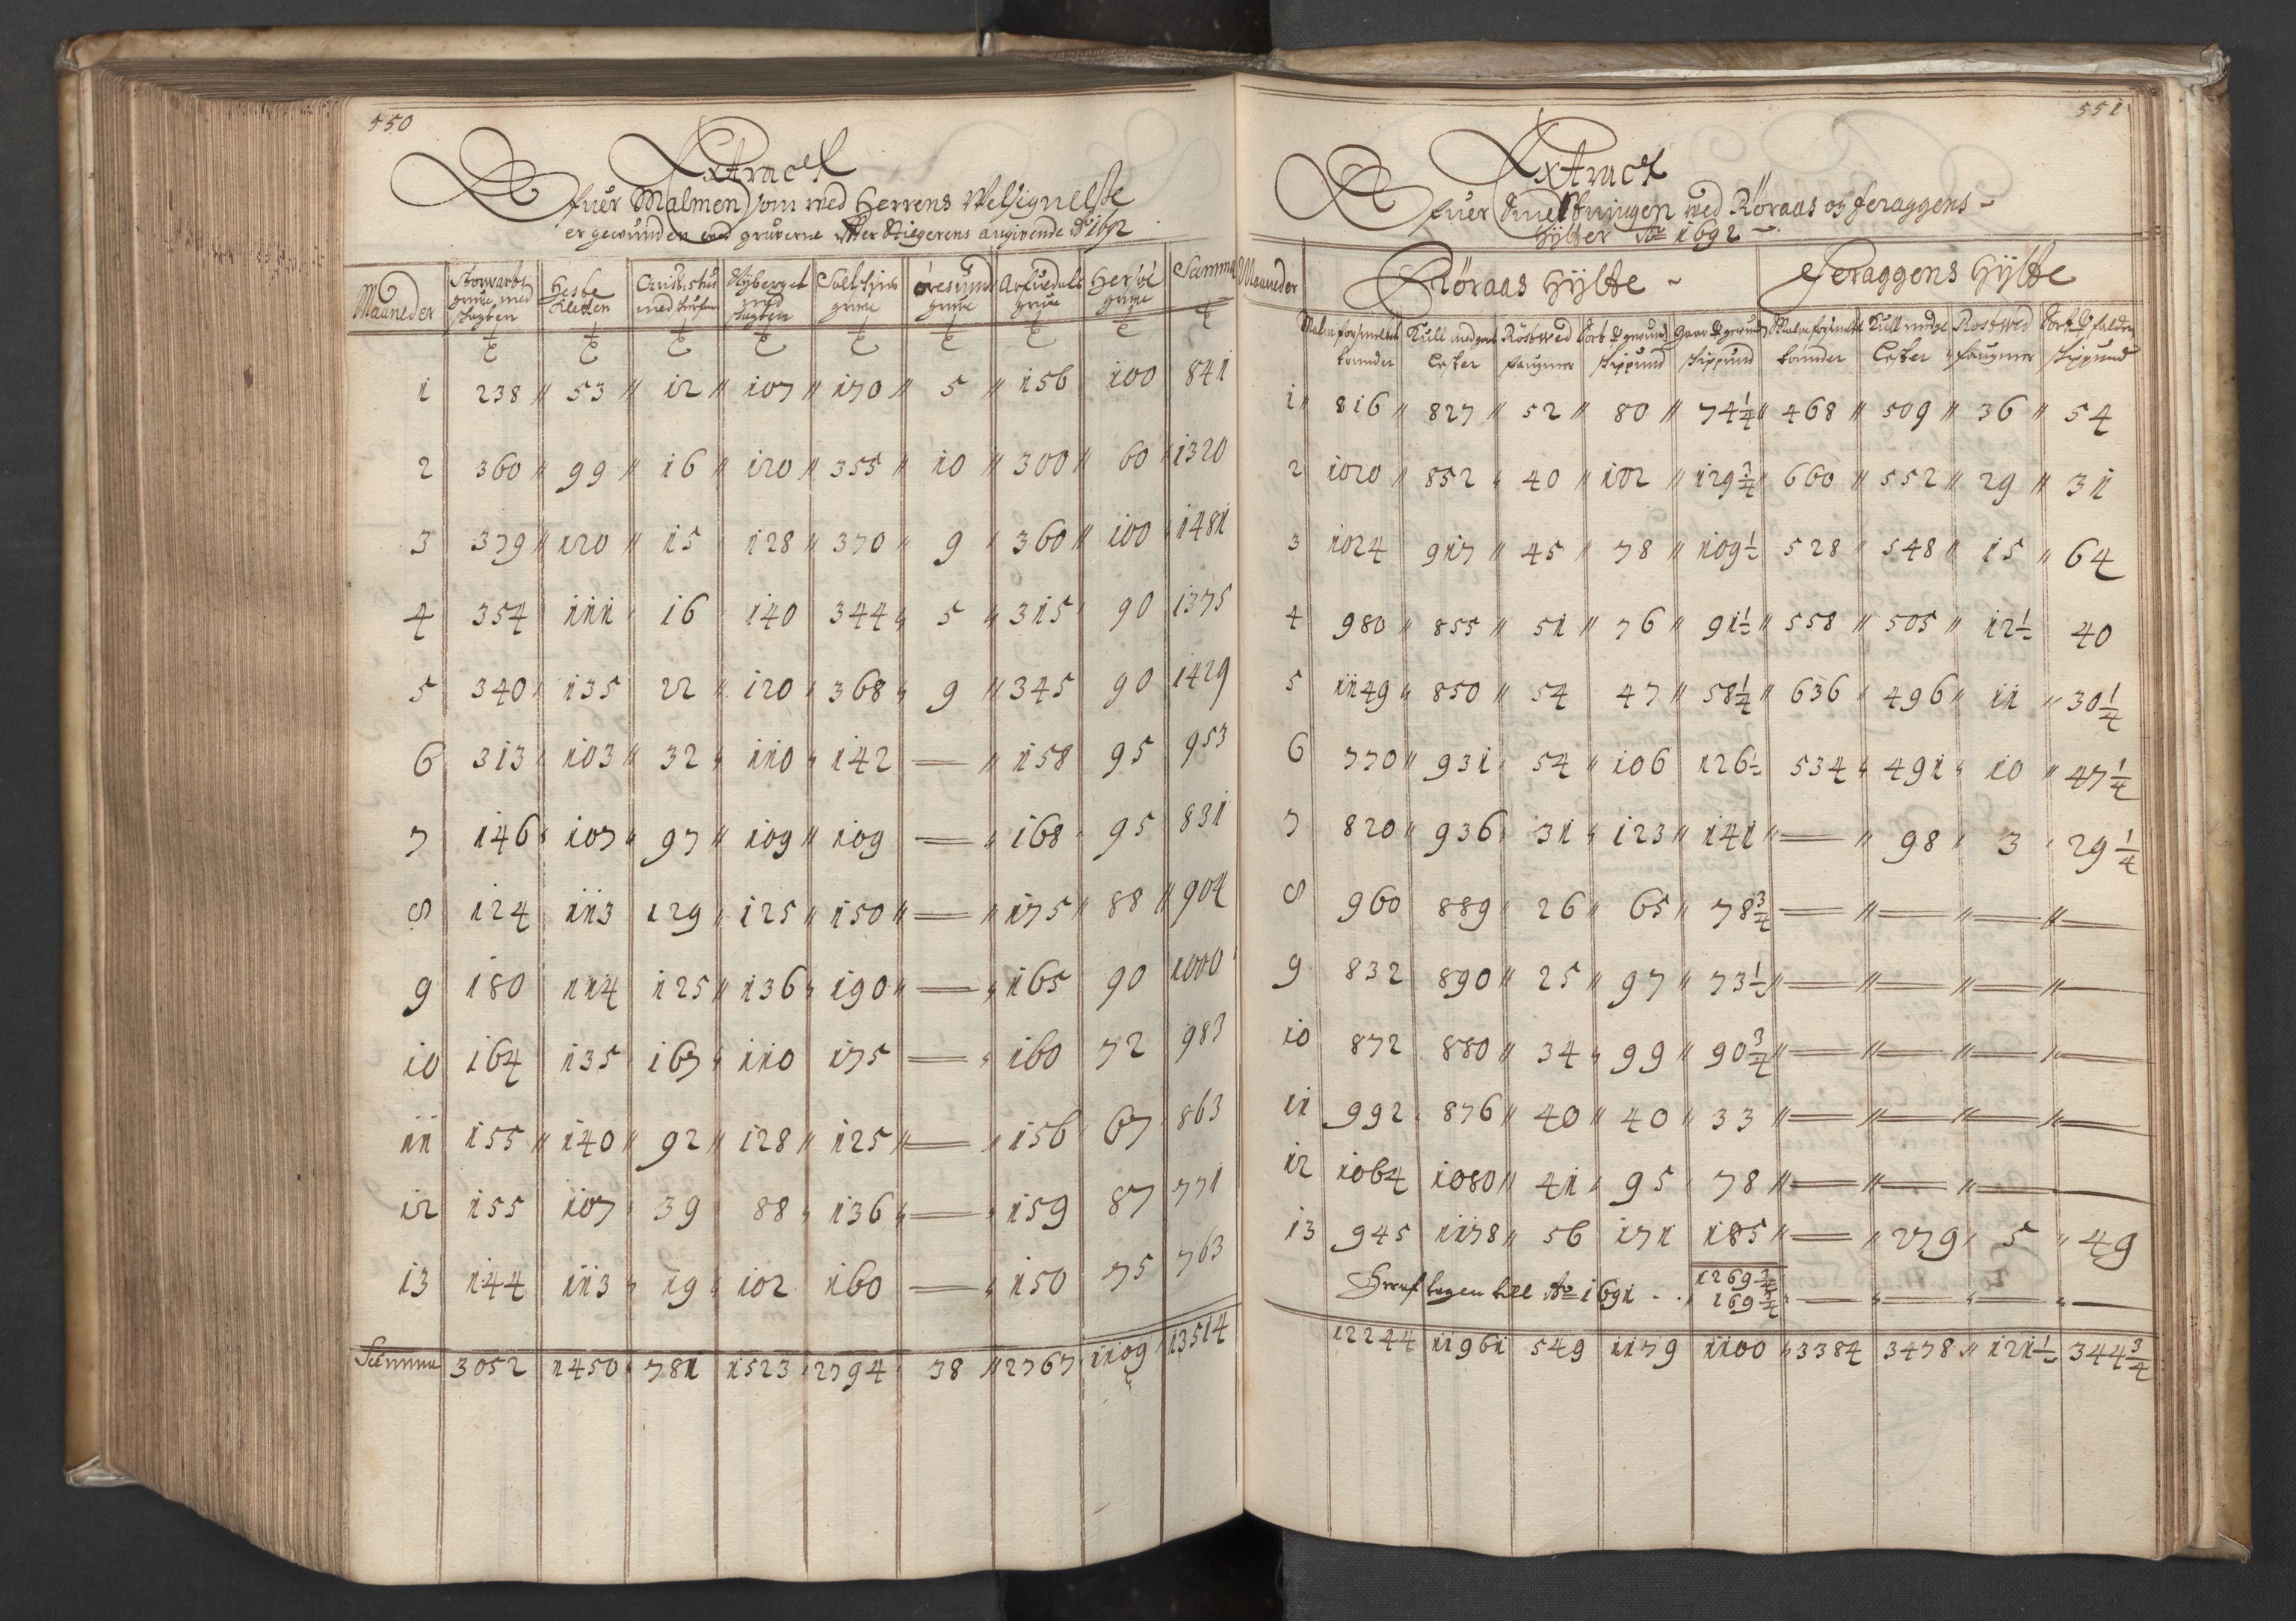 550
Extract
Ofuer Malmen som med Herrens Velsignelse
er gewunden ved gruberne effter Stigerens angivende Ao 1692
Maaneder Storwarts grue med skazten Heste Kletten Christ: stus med Nyberget med skazten Grue Øresund grue Arfuedals grue grue Summa
1 238 53 12 107 170 5 156 100 841
2 360 99 16 120 355 10 300 60 1320
3 379 120 15 128 370 9 360 100 1481
4 354 111 16 140 344 5 315 90 1375
5 340 135 22 120 368 9 345 90 1429
6 313 103 32 110 142 — 158 95 953
7 146 107 97 109 109 — 168 95 831
8 124 113 129 125 150 — 175 88 904
9 180 114 125 136 190 — 165 90 1000
10 164 135 167 110 175 — 160 72 983
11 155 140 92 128 125 — 156 67 863
12 155 107 39 88 136 — 159 87 771
13 144 113 19 102 160 — 150 75 763
Summa 3052 1450 781 1523 2794 38 2767 1109 13514
551
Extract
Ofuer Smeltningen ved Röraas og feraggens
Hÿtter Ao 1692
Maaneder Röraas Hÿtte Feraggens Hÿtte
Malm forsmeltet Kull medgaaet Röstwed Sort gewund Gaar gewund Malm forsmeltet Kull medgaaet Rostwed Sort falden
tønder Lester faugner skippund skippund tønder Lester faugner skippund
1 816 827 52 80 74 1/4 468 509 36 54
2 1020 852 40 102 129 3/4 660 552 29 31
3 1024 917 45 78 109 1/2 528 548 15 64
4 980 855 51 76 91 1/2 558 505 12 1/2 40
5 1149 850 54 47 58 1/4 636 496 11 30 1/4
6 770 931 54 106 126 1/2 534 491 10 47 1/4
7 820 936 31 123 141 — 98 3 29 1/4
8 960 889 26 65 78 3/4 — — — —
9 832 890 25 97 73 1/2 — — — —
10 872 880 34 99 90 3/4 — — — —
11 992 876 40 40 33 — — — —
12 1064 1080 41 95 78 — — — —
13 945 1178 56 171 185 — 279 5 49
1269 3/4
Heraf tagen till Ao 1691 . . 169 3/4 — — — —
12244 11961 549 1179 1100 3384 3478 121 1/2 344 3/4